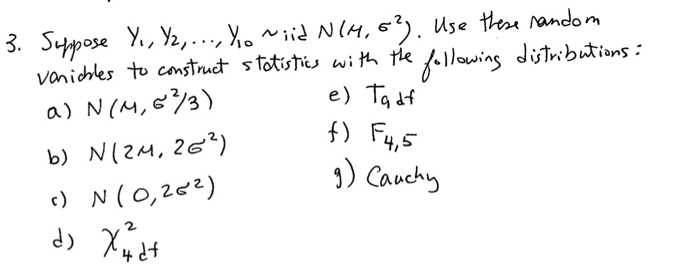 3. Suppose Y₁, Y₂, ..., Y₁₀ ~ iid N(M, σ²). Use these random
variables to construct statistics with the following distributions:
a) N(M, σ²/3)
b) N(2M, 2σ²)
c) N(0, 2σ²)
d) χ²₄ df
e) T₉ df
f) F₄,₅
g) Cauchy